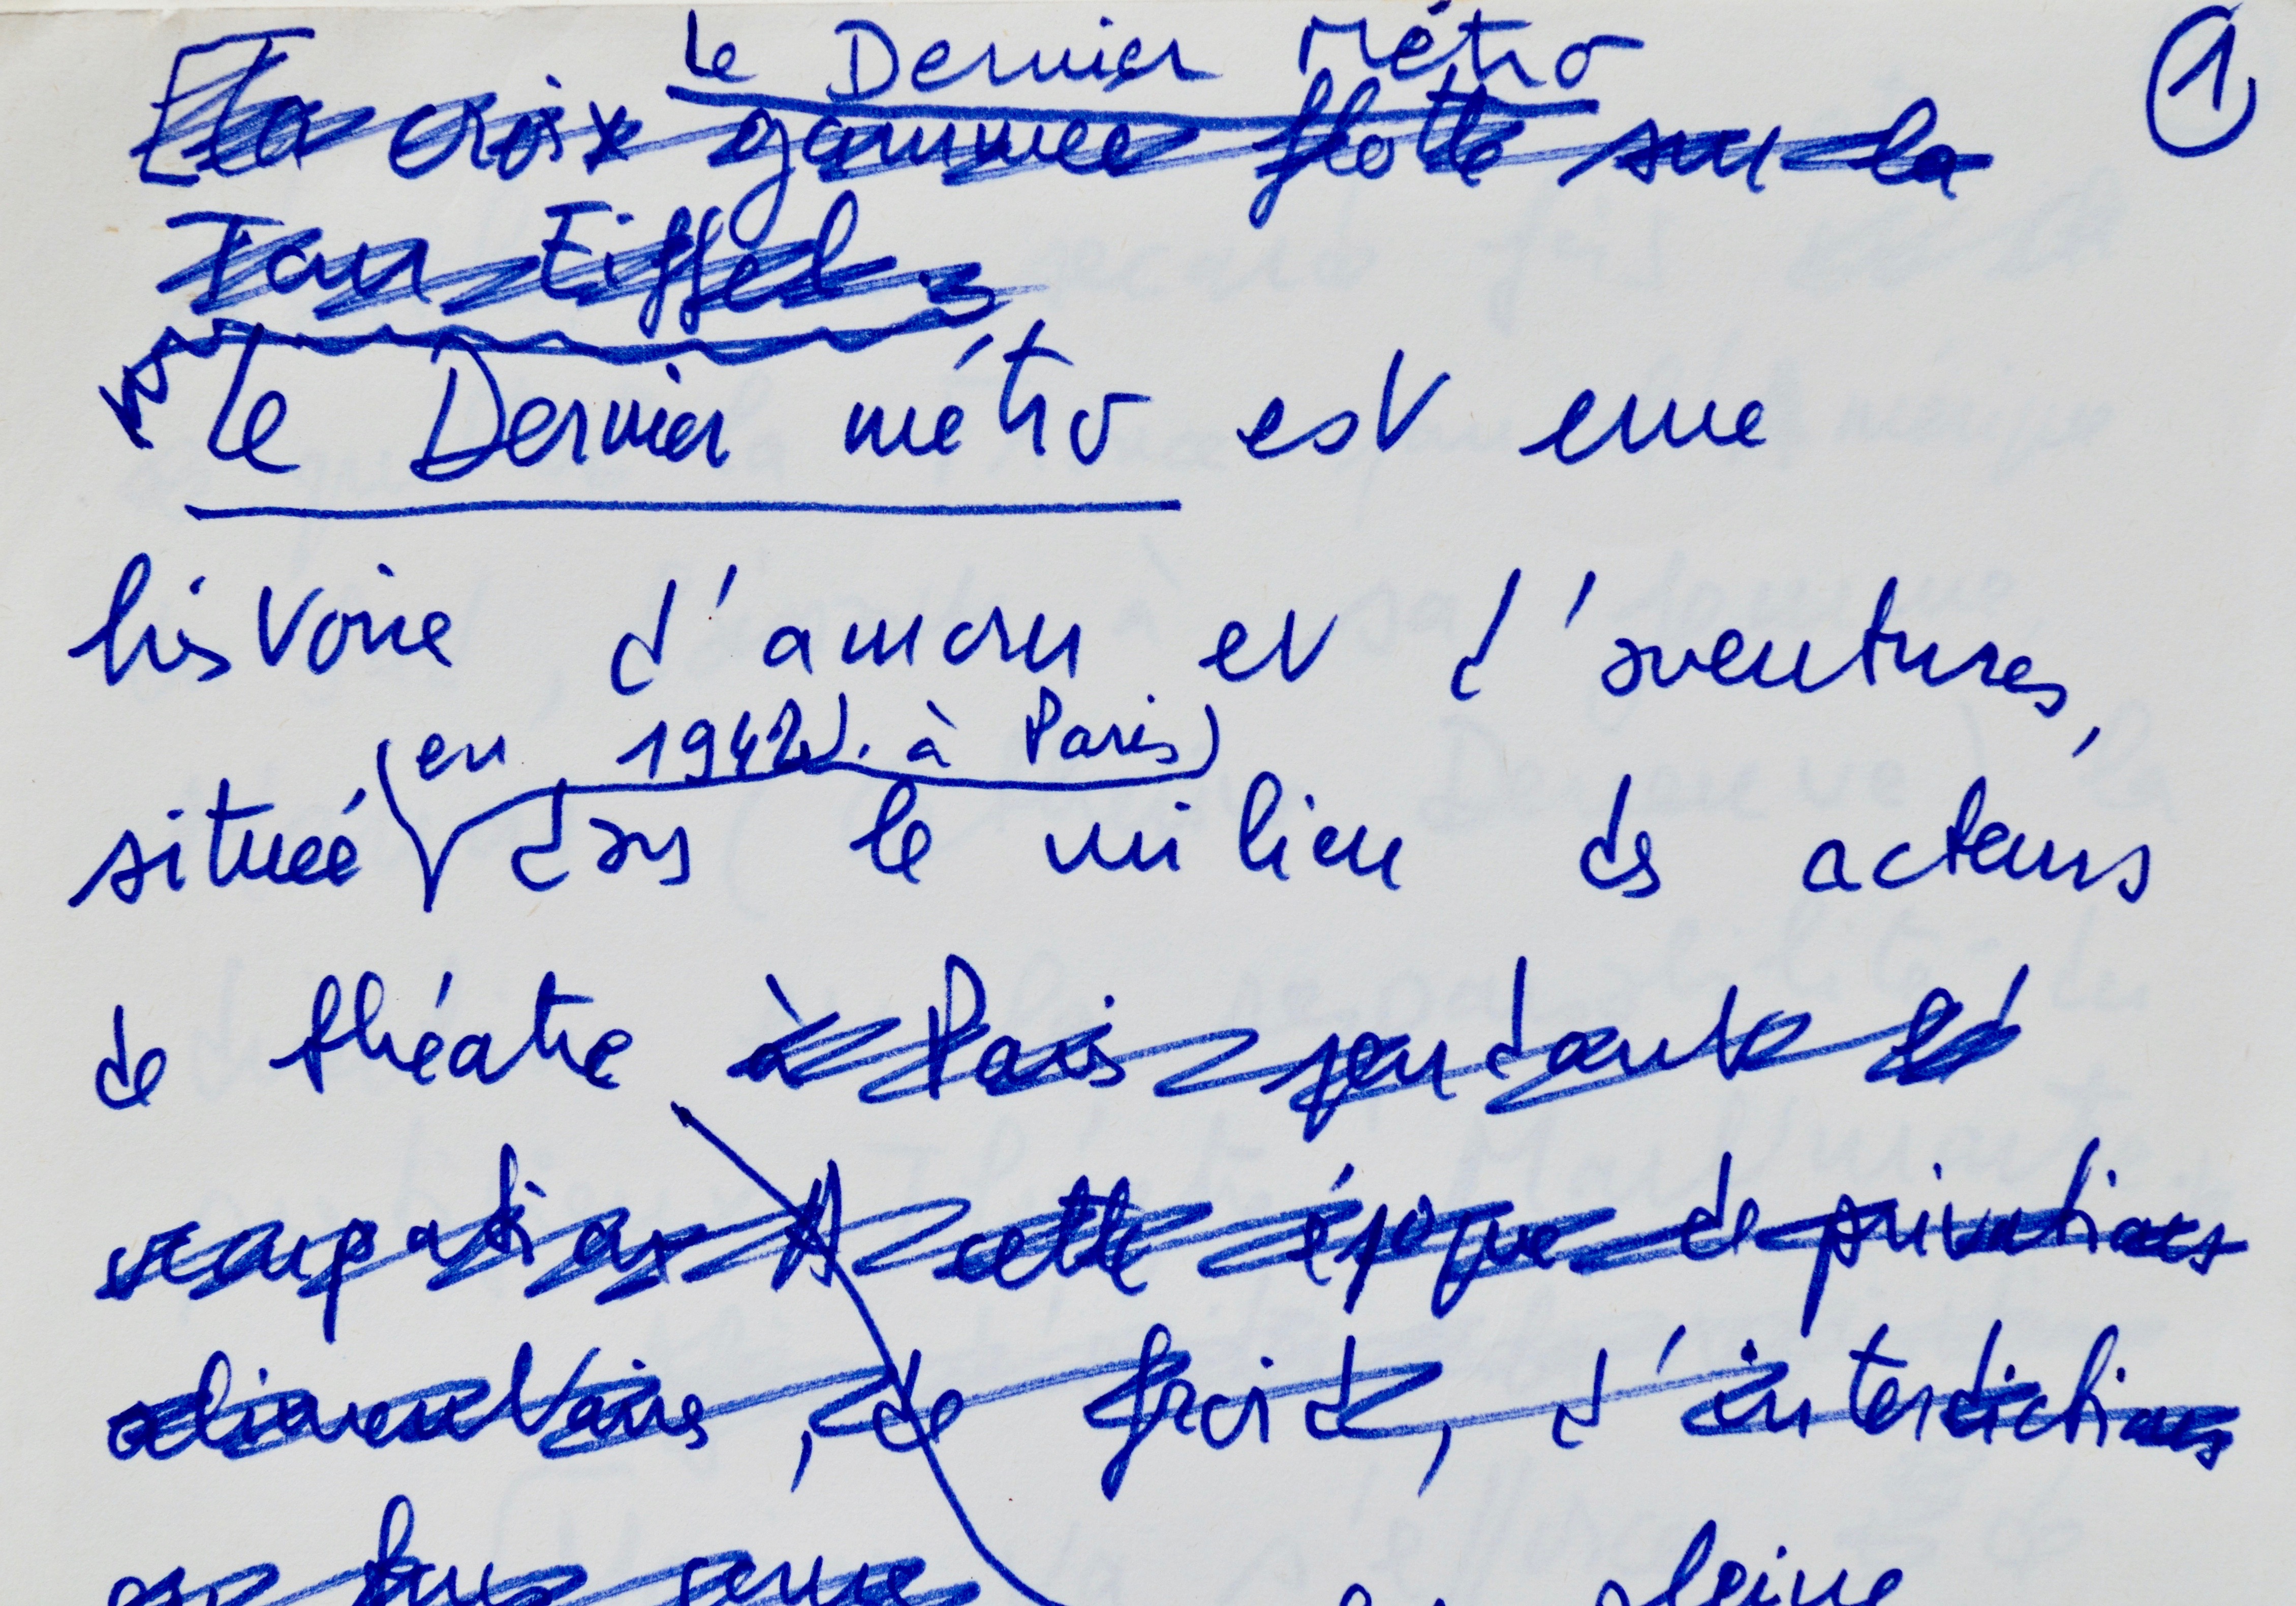 Le Dernier Métro
1
[La croix gammée flotte sur la
Tour Eiffel
Le Dernier métro est une
histoire d'amour et d'aventures,
(en 1942). à Paris)
située dans le milieu des acteurs
de théatre à Paris pendant
occupation A cette époque de privations
alimentaires, de froid, d'interdictions
en tous genre pleine